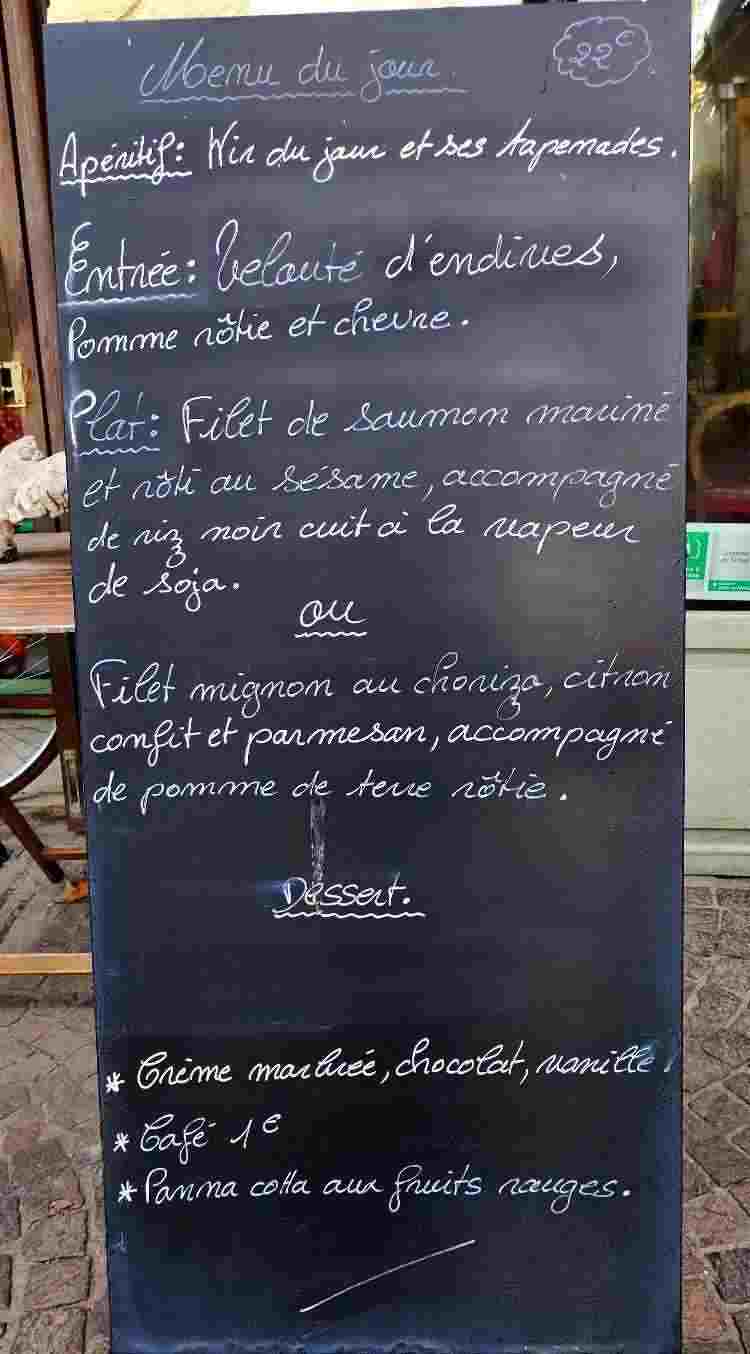 Menu du jour.
22€
Apéritif: Kir du jour et ses tapenades.
Entrée: Velouté d'endives,
Pomme rôtie et chèvre.
Plat: Filet de saumon mariné
et rôti au sésame, accompagné
de riz noir cuit à la vapeur
de soja.
ou
Filet mignon au chorizo, citron
confit et parmesan, accompagné
de pomme de terre rôtie.
Dessert.
* Crème marbrée, chocolat, vanille.
* Café 1€
* Panna cotta aux fruits rouges.